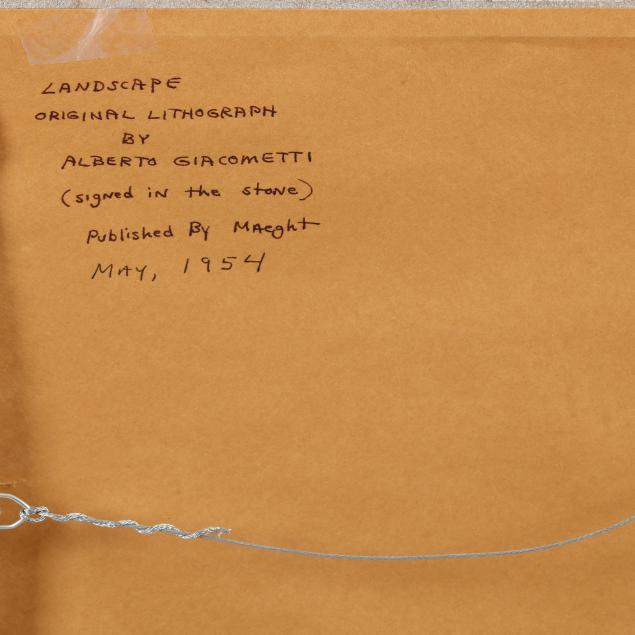 LANDSCAPE
ORIGINAL LITHOGRAPH
BY
ALBERTO GIACOMETTI
(signed in the stone)
Published By Maeght
MAY, 1954